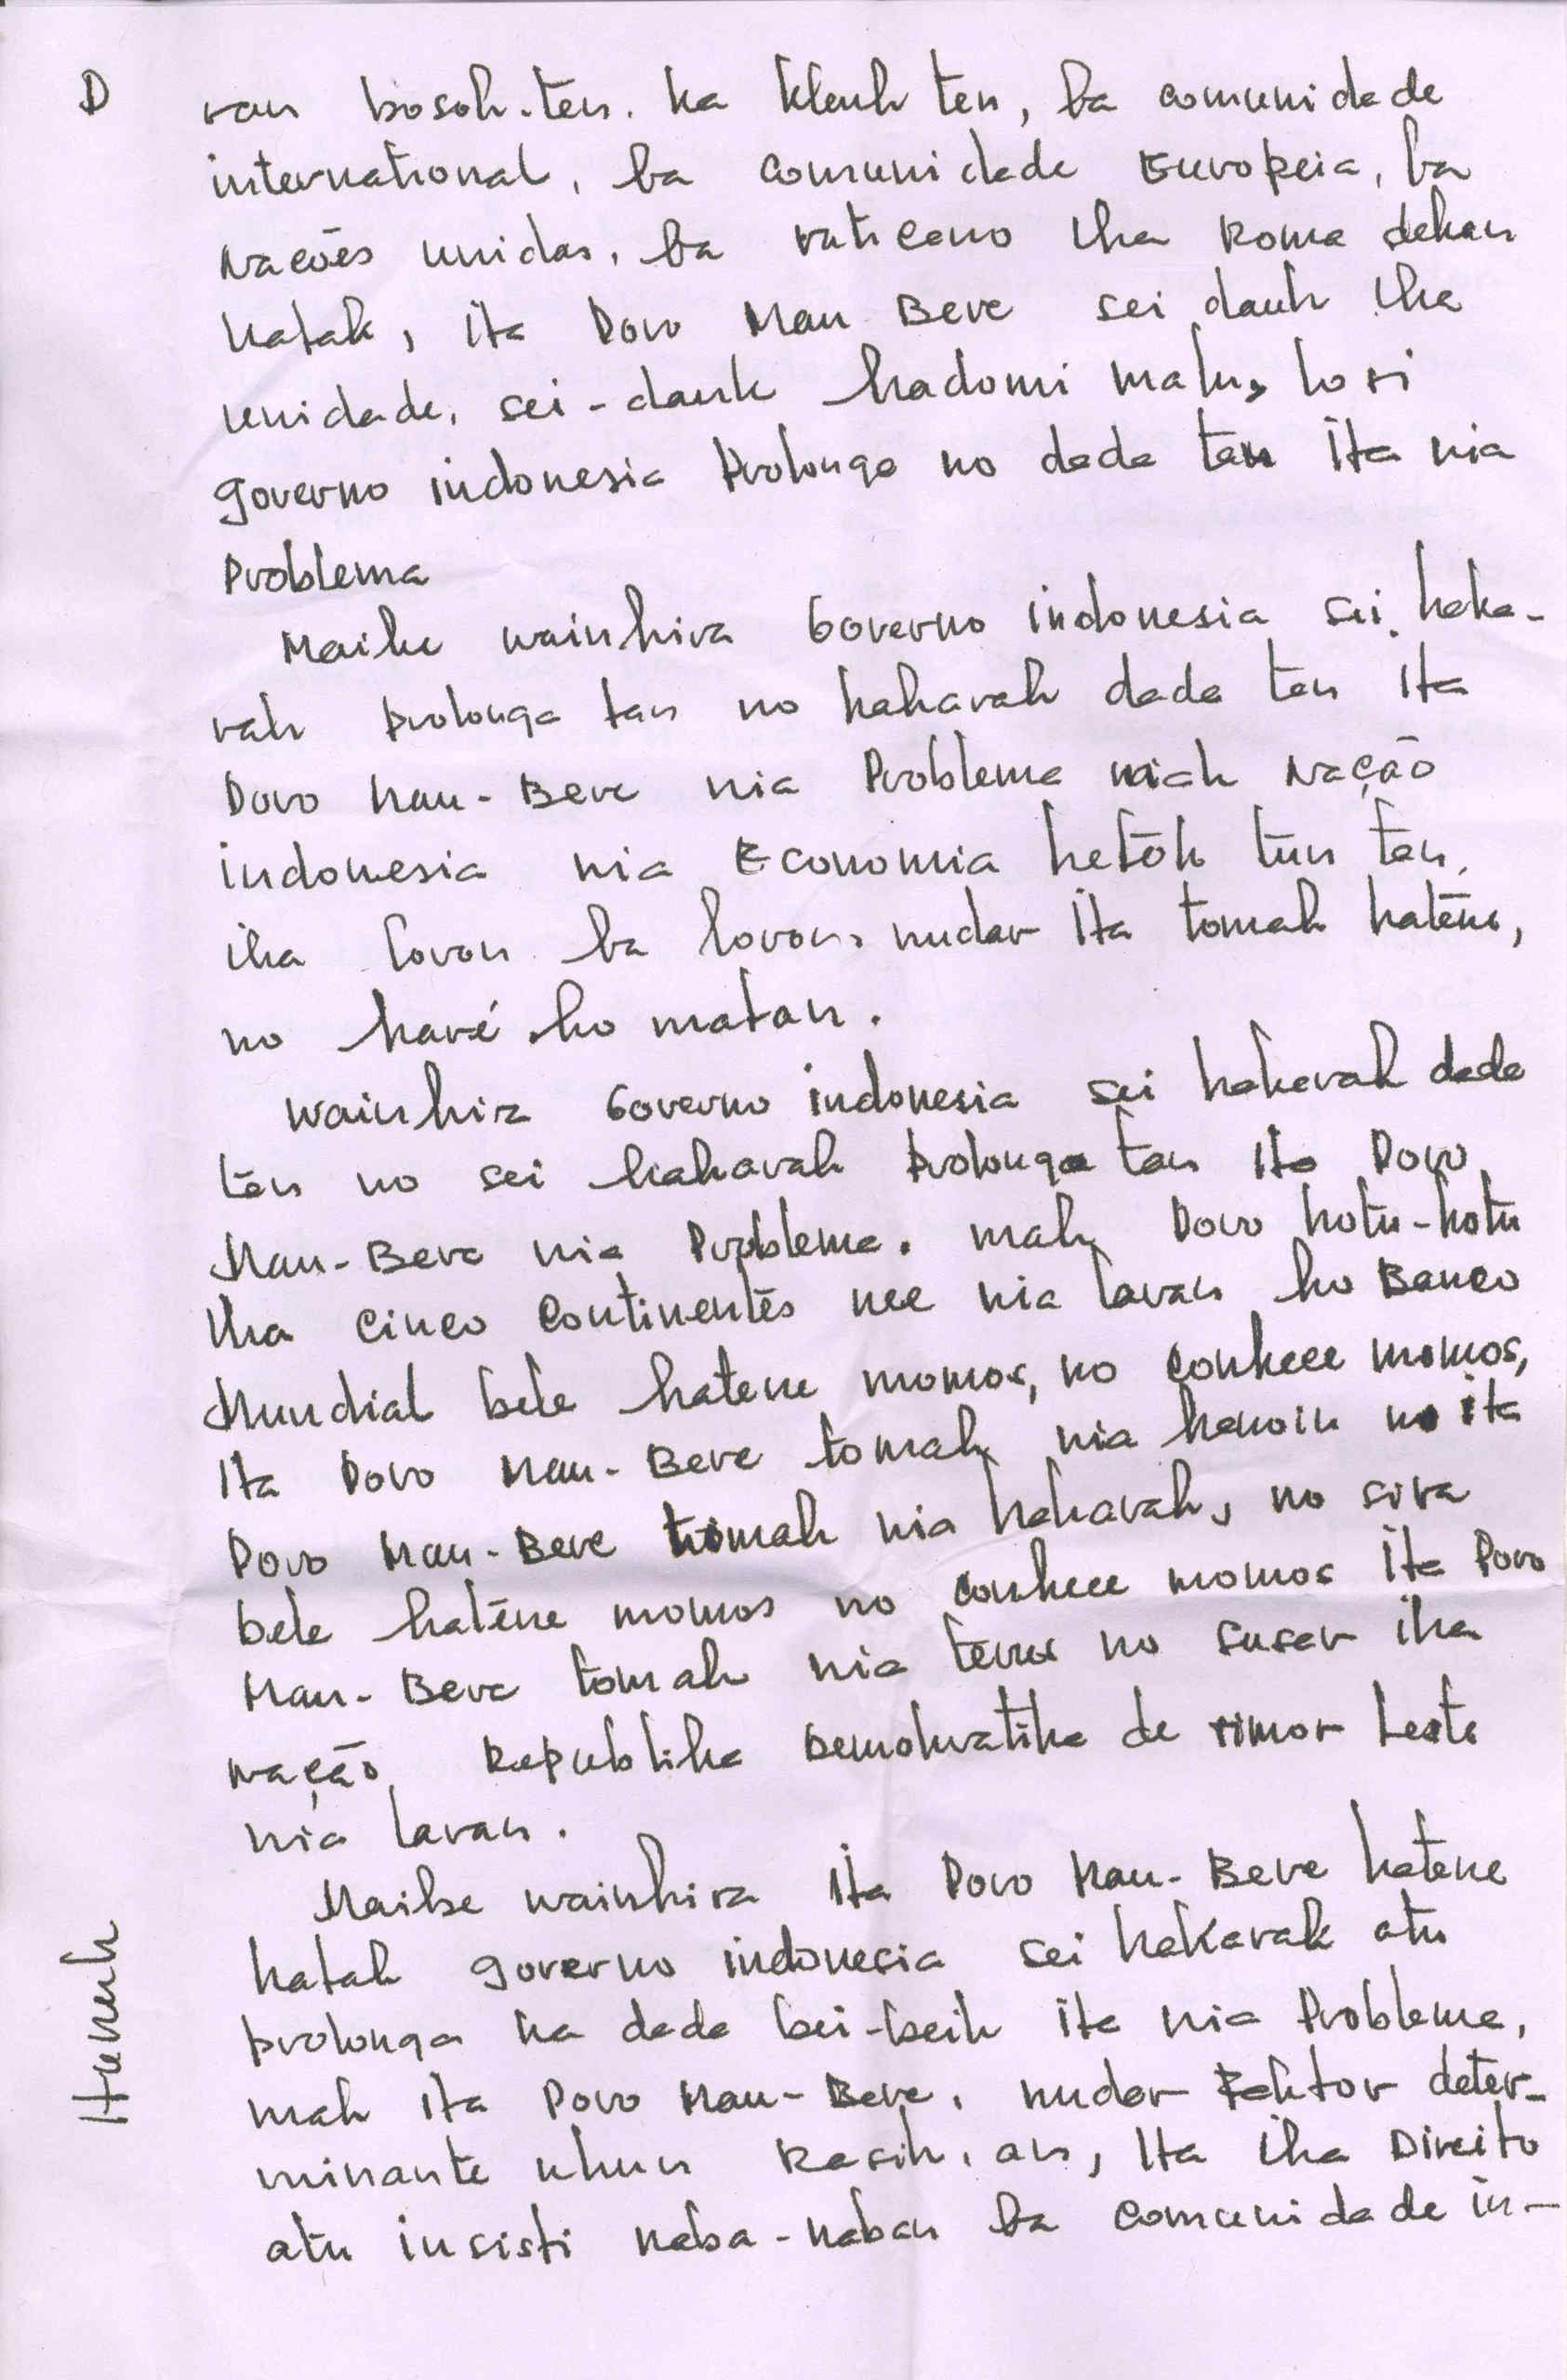 D
ran bosok-ten. ka kleuk ten, ba comunidade
international, ba comunidade Europeia, ba
Nacōes unidas, ba vaticano iha Roma dehan
katak, ita Povo Mau Bere sei dauk iha
unidade, sei-dauk hadomi malu, hosi
governo indonesia Prolonga no dada tan ita nia
Problema
Maibe wainhira Governo indonesia sei haka-
rak prolonga tan no hakarak dada tan ita
Povo Mau-Bere nia Problema mak Nação
indonesia nia Economia hetōk tūn tan,
iha loron ba loron, nudar ita tomak hatēne,
no haré ho matan.
Wainhira Governo indonesia sei hakarak dada
tan no sei hakarak prolonga tan ita Povo
Mau-Bere nia Problema. mak Povo hotu-hotu
iha cinco continentēs nee nia laran ho Banco
Mundial bele hatene momos, no conhece momos,
ita Povo Mau-Bere tomak nia hanoin no ita
Povo Mau-Bere tomak nia hakarak, no sira
bele hatēne momos no conhece momos ita Povo
Mau-Bere tomak nia terus no susar iha
nação Republika Demokratika de Timor Leste
nia laran.
Maibe wainhira ita Povo Mau-Bere hatene
katak governo indonesia sei hakarak atu
prolonga ka dada bei-beik ita nia Problema,
mak ita Povo Mau-Bere, nudar Faktor deter-
minante ukun Rasik, an, ita iha Direito
atu insisti naba-naban ba comunidade in-
Hanuk